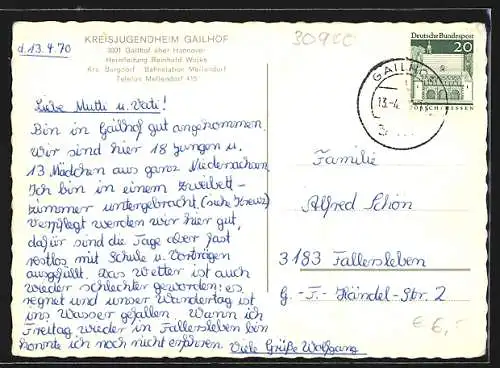 KREISJUGENDHEIM GAILHOF
3001 Gailhof über Hannover
Heimleitung Reinhold Wojke
Krs. Burgdorf Bahnstation Mellendorf
Telefon Mellendorf 415
d. 13.4.70
Liebe Mutti u. Vati!
Bin in Gailhof gut angekommen.
Wir sind hier 18 Jungen u.
13 Mädchen aus ganz Niedersachsen.
Ich bin in einem Zweibett-
zimmer untergebracht. (siehe Kreuz)
Verpflegt werden wir hier gut,
dafür sind die Tage aber fast
restlos mit Schule u. Vorträgen
ausgefüllt. Das Wetter ist auch
wieder schlechter geworden: es
regnet und unser Wandertag ist
uns Wasser gefallen. Wann ich
Freitag wieder in Fallersleben bin
konnte ich noch nicht erfahren. Viele Grüße Wolfgang
Deutsche Bundespost
20
LORSCH/HESSEN
GAILHOF
13.-4.
Familie
Alfred Schön
3183 Fallersleben
G.-F.-Händel-Str. 2
€ 6,-